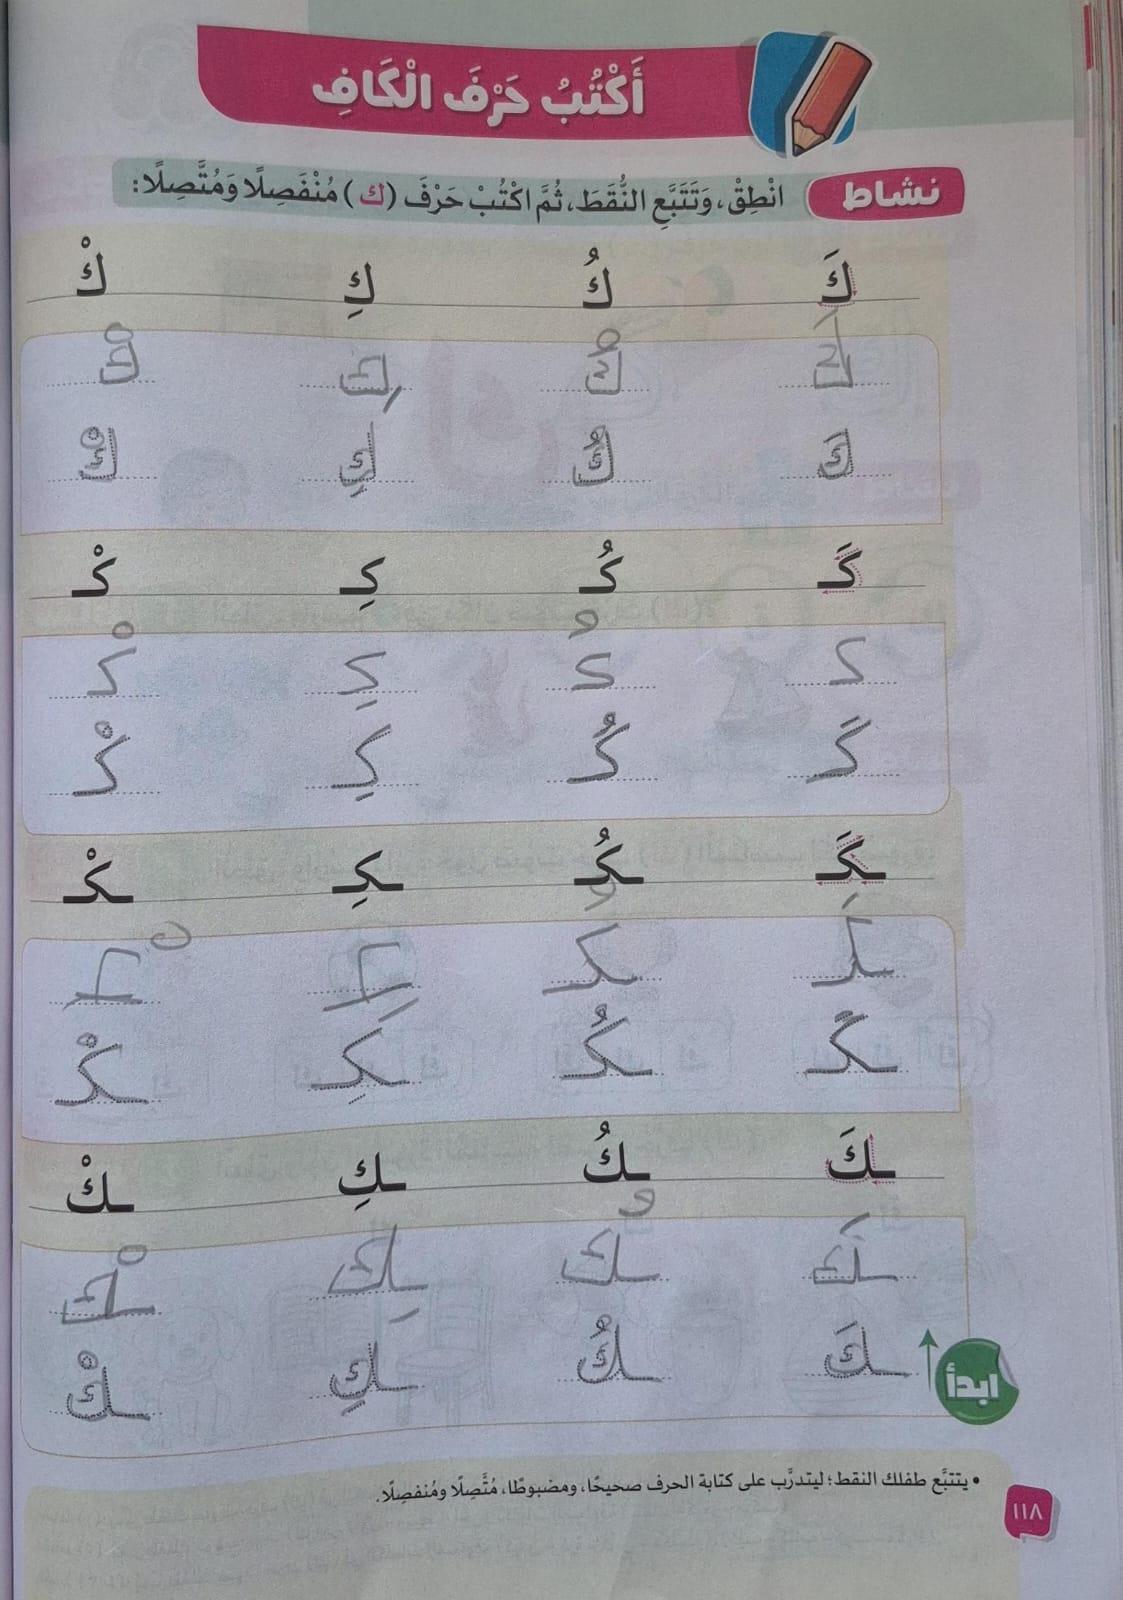 أَكْتُبُ حَرْفَ الْكَافِ
نشاط انْطِقْ، وَتَتَبَّعِ النُّقَطَ، ثُمَّ اكْتُبْ حَرْفَ (ك) مُنْفَصِلًا وَمُتَّصِلًا:
كَ كُ كِ كْ
كَ كُ كِ كْ
كَ كُ كِ كْ
كَـ كُـ كِـ كْـ
كـ كُـ كِـ كْـ
كَـ كُـ كِـ كْـ
ـكَـ ـكُـ ـكِـ ـكْـ
ـكَـ ـكُـ ـكِـ ـكْـ
ـكَـ ـكُـ ـكِـ ـكْـ
ـكَ ـكُ ـكِ ـكْ
ـكَ ـكُ ـكِ ـكْ
ـكَ ـكُ ـكِ ـكْ
ابدأ
• يتتبَّع طفلك النقط؛ ليتدرَّب على كتابة الحرف صحيحًا، ومضبوطًا، مُتَّصِلًا ومُنفصِلًا.
١١٨